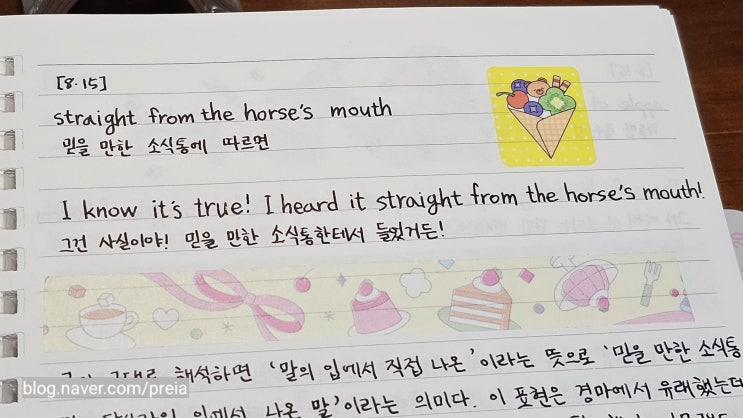 [8·15]
straight from the horse's mouth
믿을 만한 소식통에 따르면
I know it's true! I heard it straight from the horse's mouth!
그건 사실이야! 믿을 만한 소식통한테서 들었거든!
그대로 해석하면 '말의 입에서 직접 나온'이라는 뜻으로 '믿을 만한 소식통
입에서 나온 말'이라는 의미다. 이 표현은 경마에서 유래했는데
blog.naver.com/preia